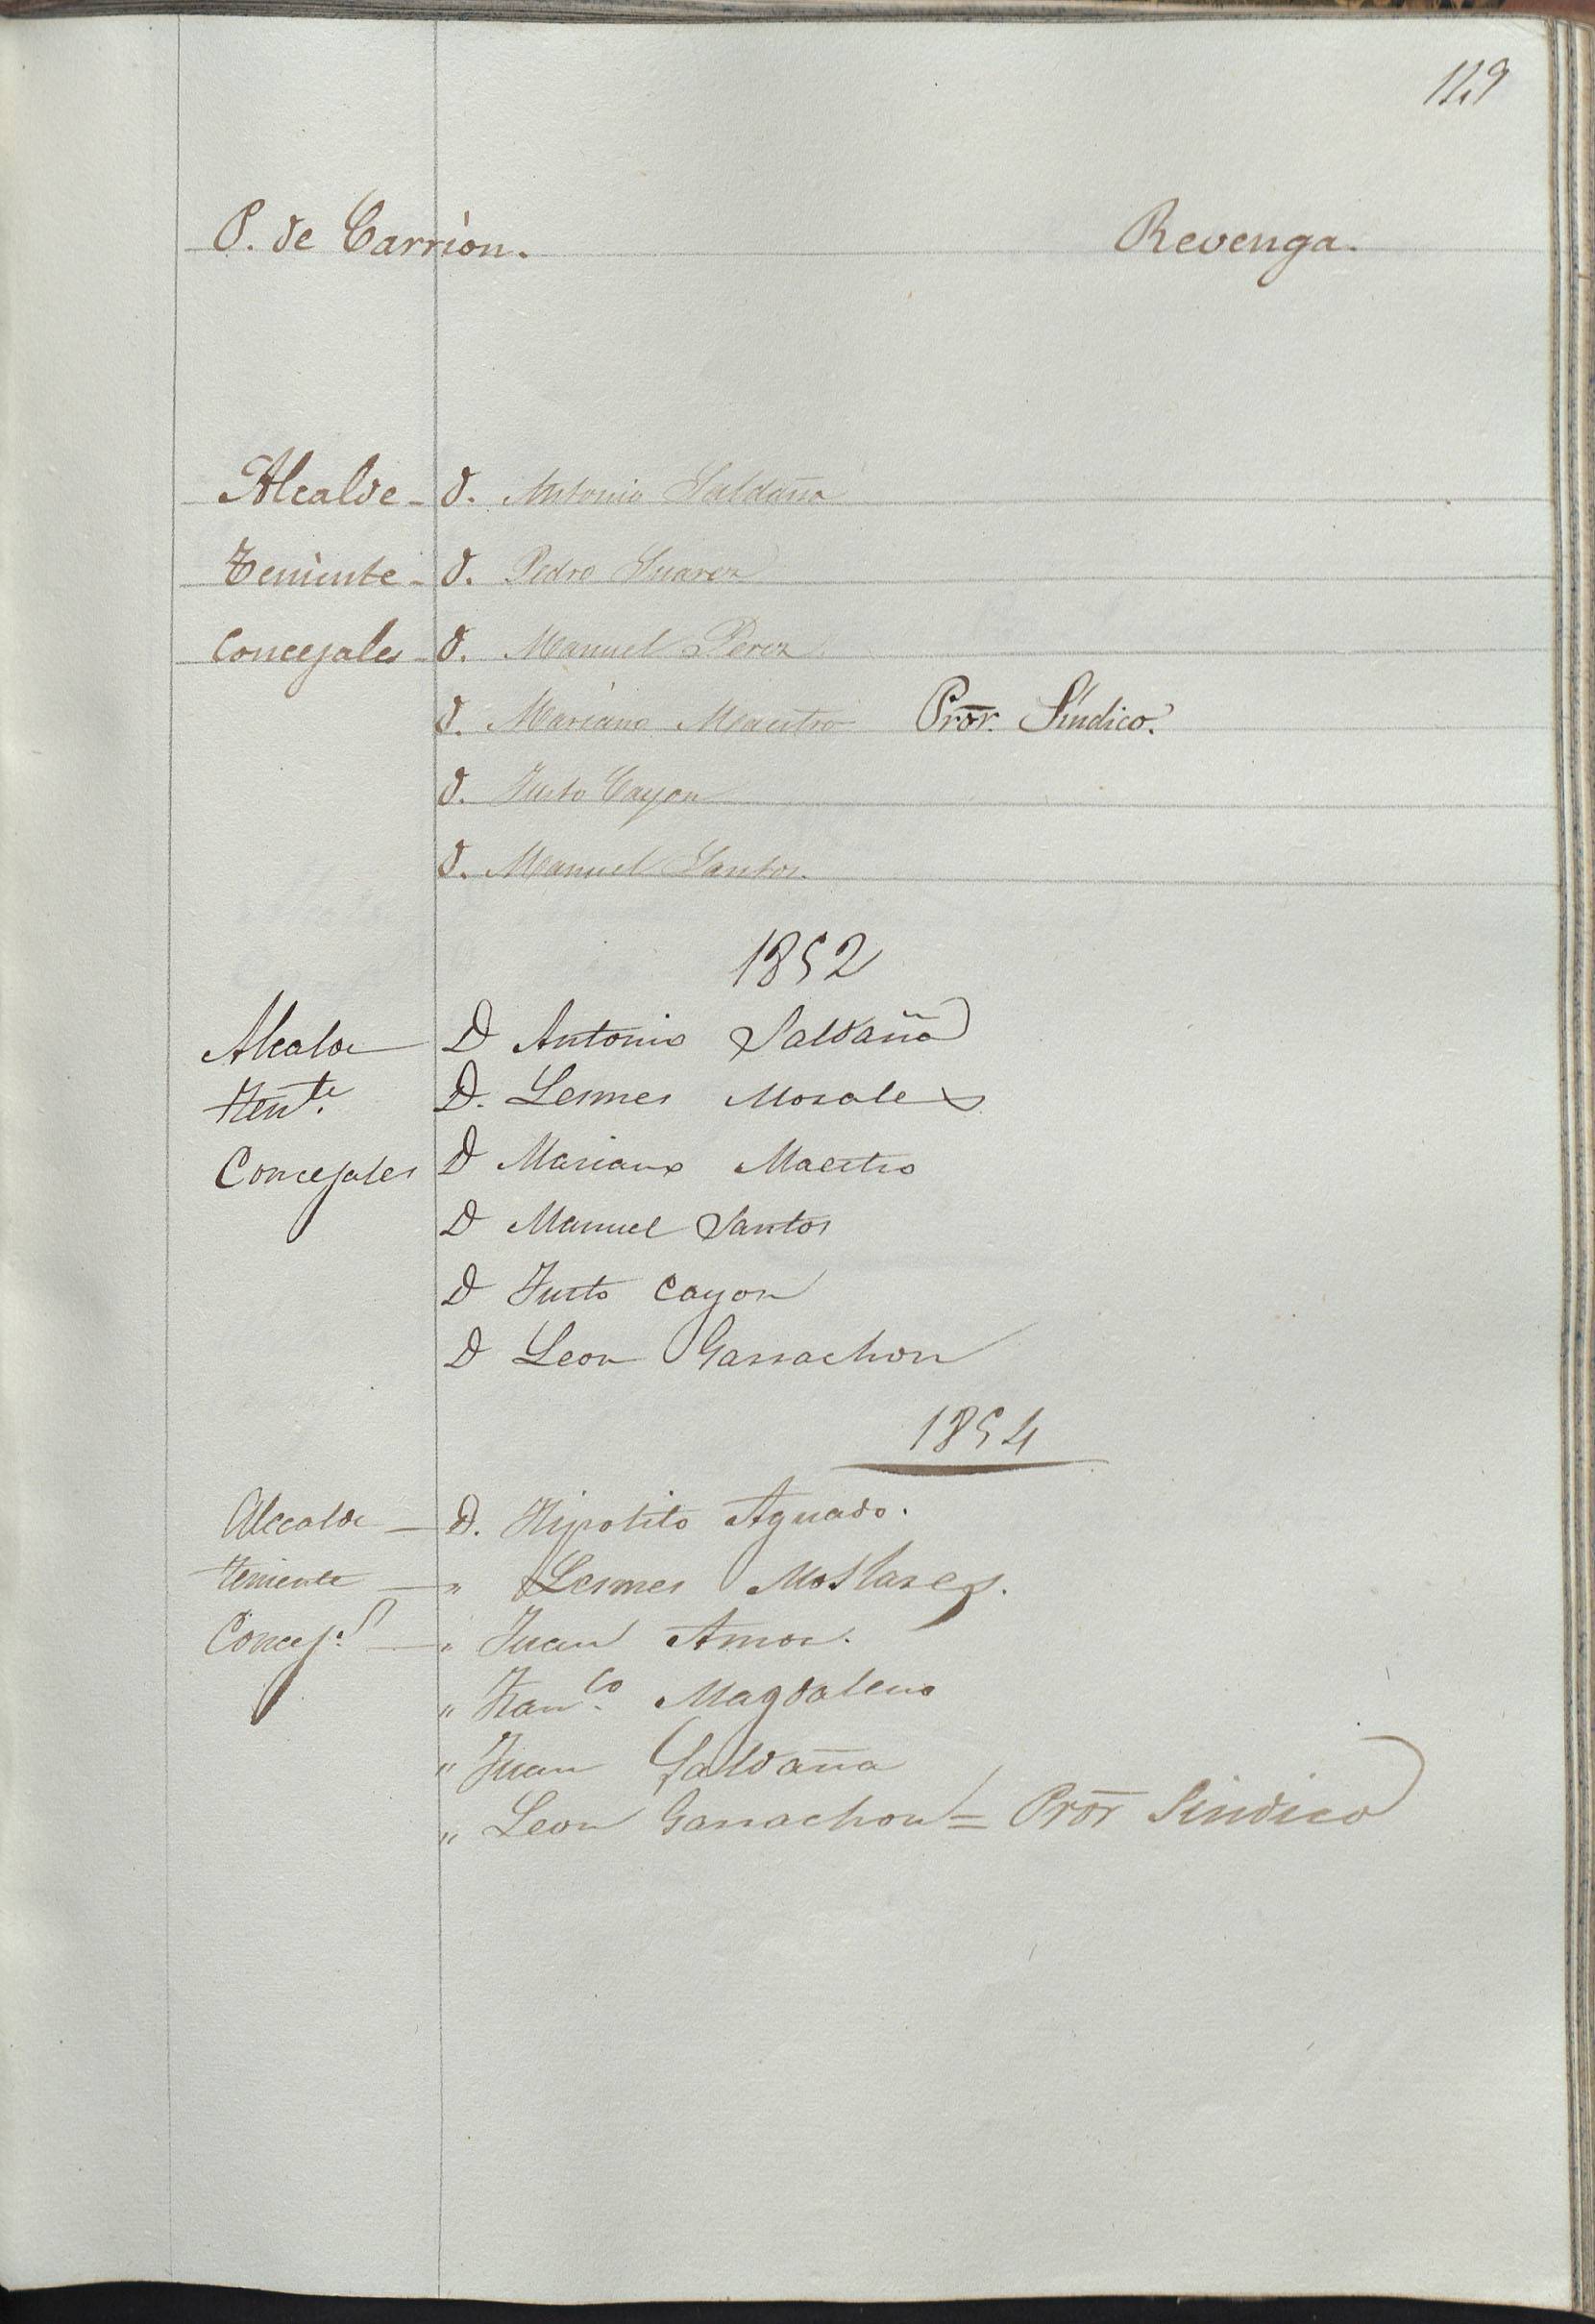 119
P. de Carrion. Revenga.
Alcalde - D. Antonio Saldaña
Teniente - D. Pedro Suarez
Concejales - D. Manuel Perez
D. Mariano Maestro Pror. Síndico.
D. Justo Cayon
D. Manuel Santos.
1852
Alcalde D Antonio Saldaña
Tente. D. Lesmes Morales
Concejales D Mariano Maestro
D Manuel Santos
D Justo Cayon
D Leon Garrachon
1854
Alcalde - D. Hipolito Aguado.
Teniente - " Lesmes
Concejs. - " Juan Amor.
" Franco. Magdaleno
" Juan Saldaña
" Leon Garrachon = Pror Sindico